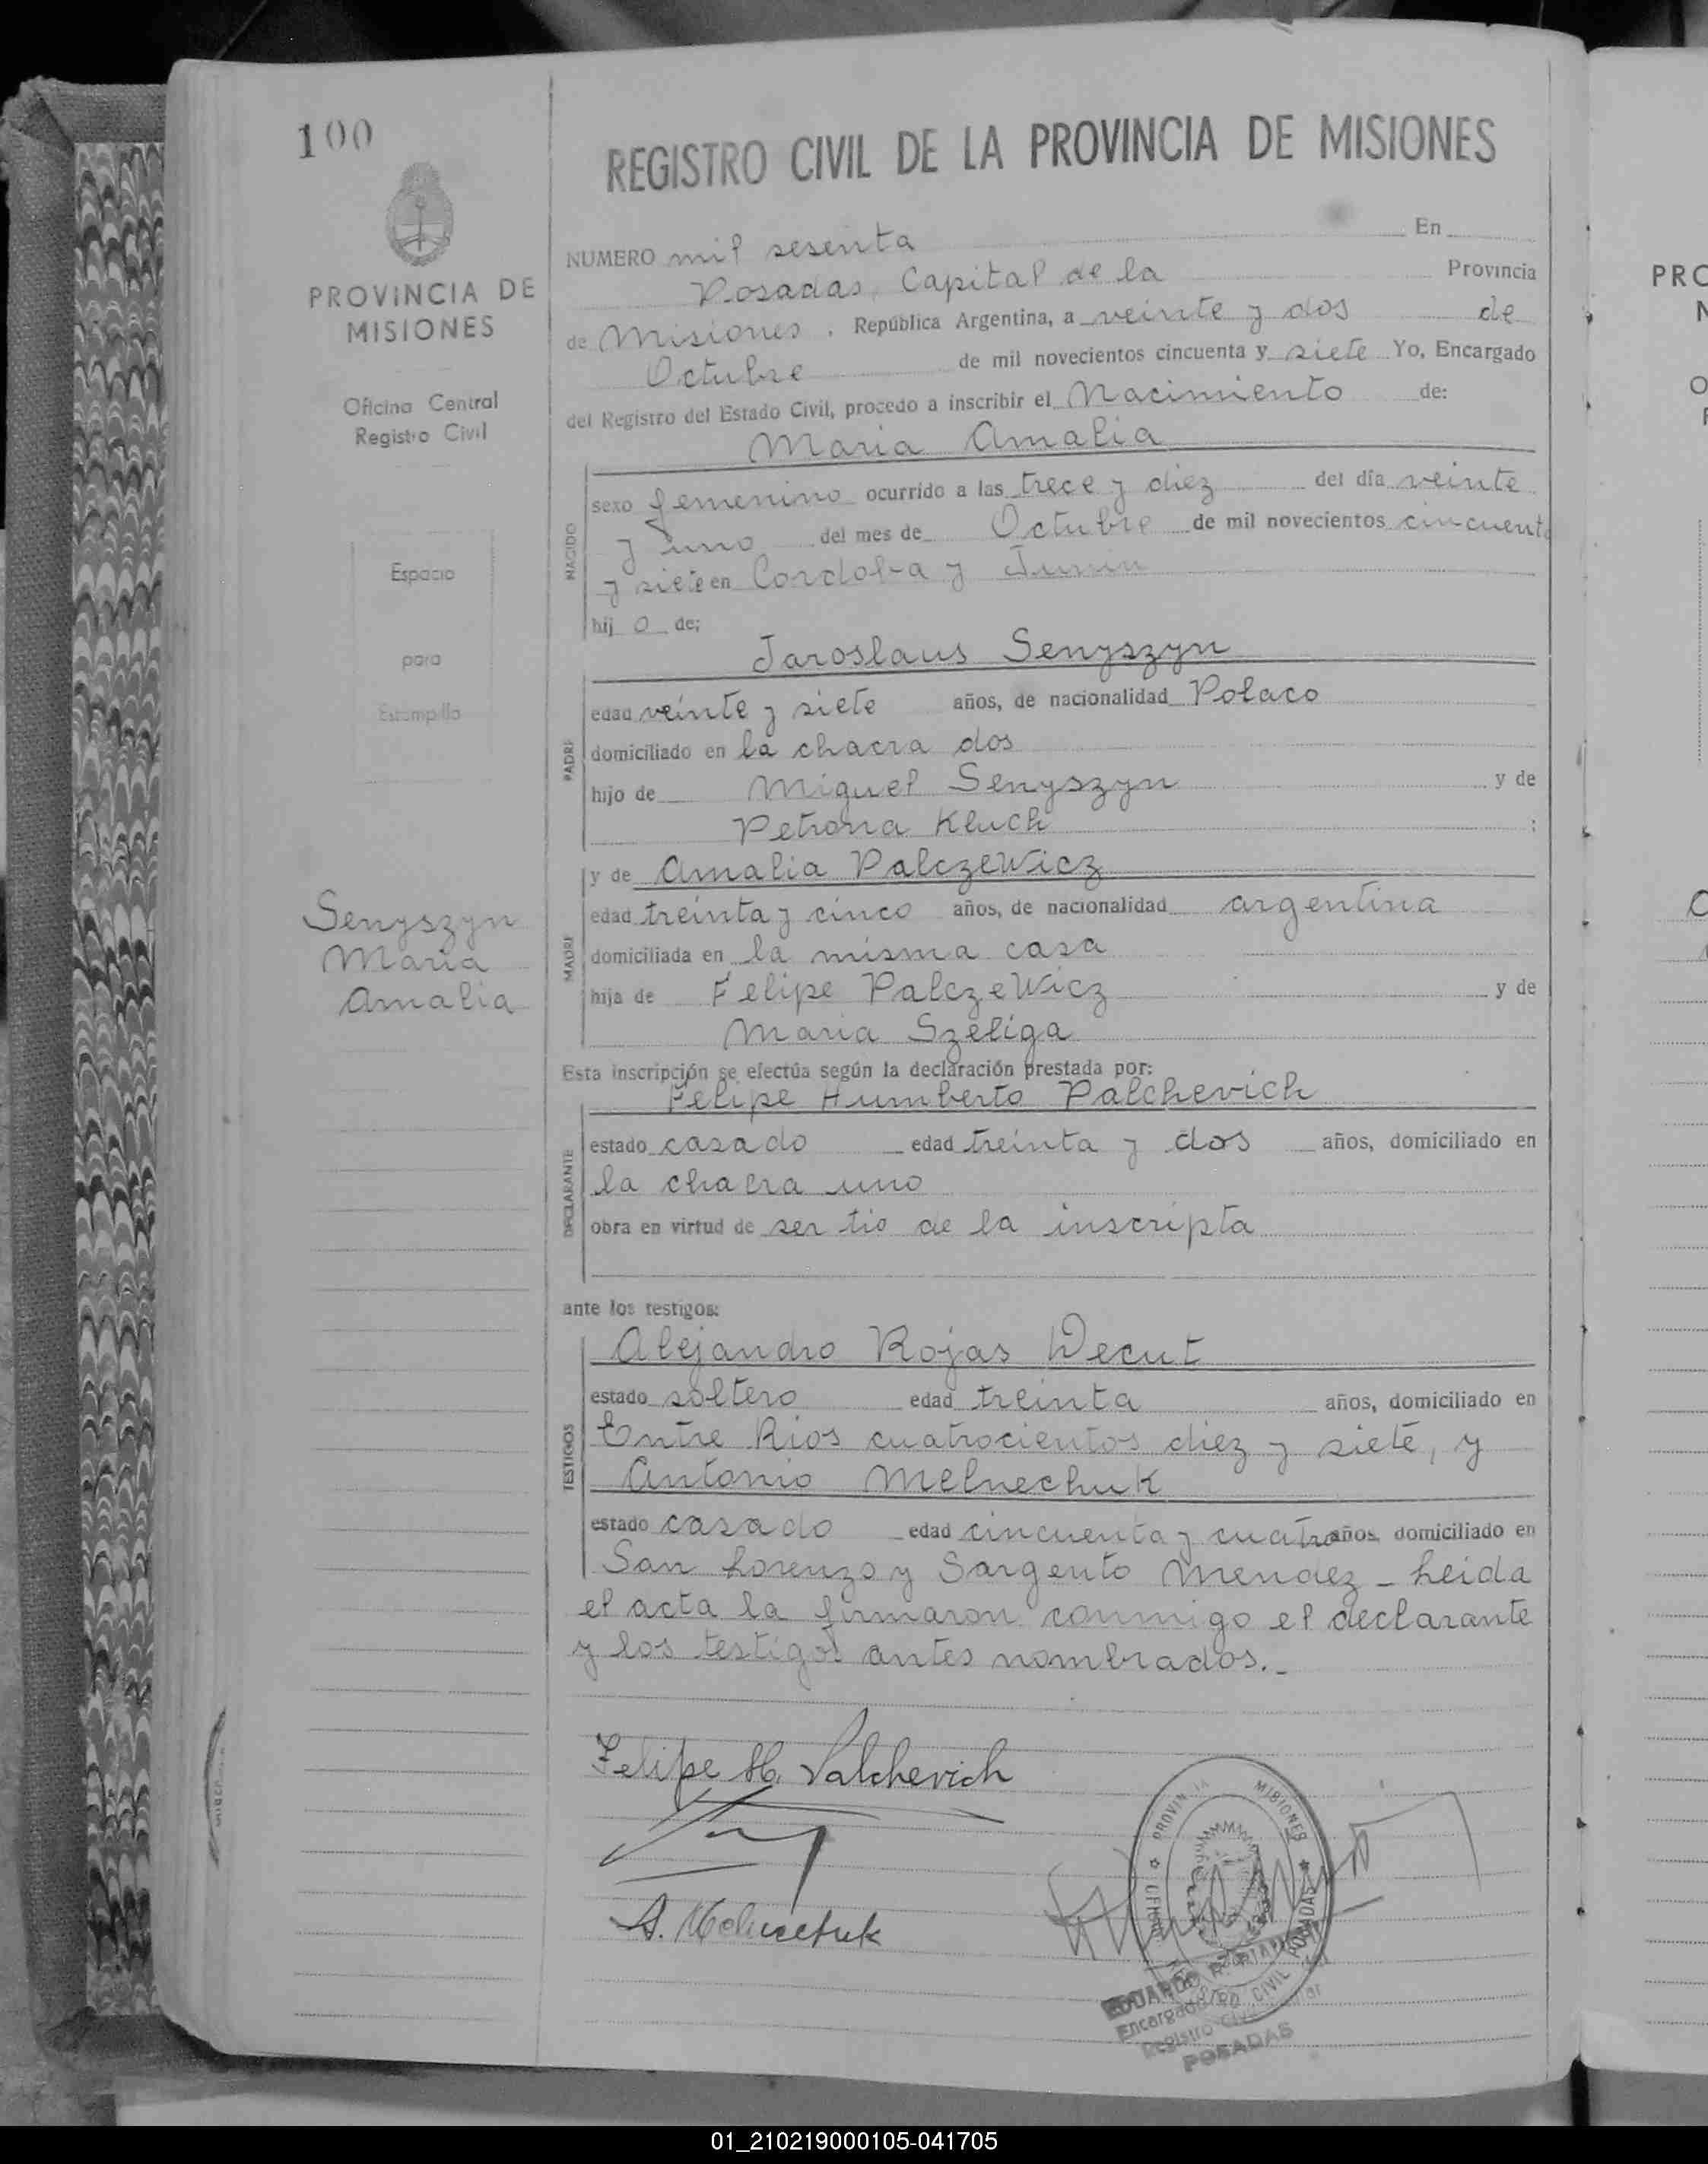 100
REGISTRO CIVIL DE LA PROVINCIA DE MISIONES
PROVINCIA DE
MISIONES
Oficina Central
Registro Civil
Espacio
para
Estampilla
Senyszyn
Maria
Amalia
NUMERO mil sesenta En
Posadas, Capital de la Provincia
de Misiones. República Argentina, a veinte y dos de
Octubre de mil novecientos cincuenta y siete Yo, Encargado
del Registro del Estado Civil, procedo a inscribir el Nacimiento de:
Maria Amalia
NACIDO
sexo femenino ocurrido a las trece y diez del día veinte
y uno del mes de Octubre de mil novecientos cincuenta
y siete en Cordoba y Junin
hij o de;
Jaroslaus Senyszyn
PADRE
edad veinte y siete años, de nacionalidad Polaco
domiciliado en la chacra dos
hijo de Miguel Senyszyn y de
Petrona Kluch ;
y de Amalia Palczewicz
MADRE
edad treinta y cinco años, de nacionalidad argentina
domiciliada en la misma casa
hija de Felipe Palczewicz y de
Maria Szeliga
Esta inscripción se efectúa según la declaración prestada por:
Felipe Humberto Palchevich
DECLARANTE
estado casado edad treinta y dos años, domiciliado en
la chacra uno
obra en virtud de ser tio de la inscripta
ante los testigos:
Alejandro Rojas Decut
TESTIGOS
estado soltero edad treinta años, domiciliado en
Entre Rios cuatrocientos diez y siete, y
Antonio Melnechuk
estado casado edad cincuenta y cuatro años, domiciliado en
San Lorenzo y Sargento Mendez - Leida
el acta la firmaron conmigo el declarante
y los testigos antes nombrados.-
Felipe H. Palchevich
A. Melnechuk
PROVINCIA MISIONES
POSADAS
CIVIL
EDUARDO R.
Encargado
Registro Civil
POSADAS
PRO
01_210219000105-041705